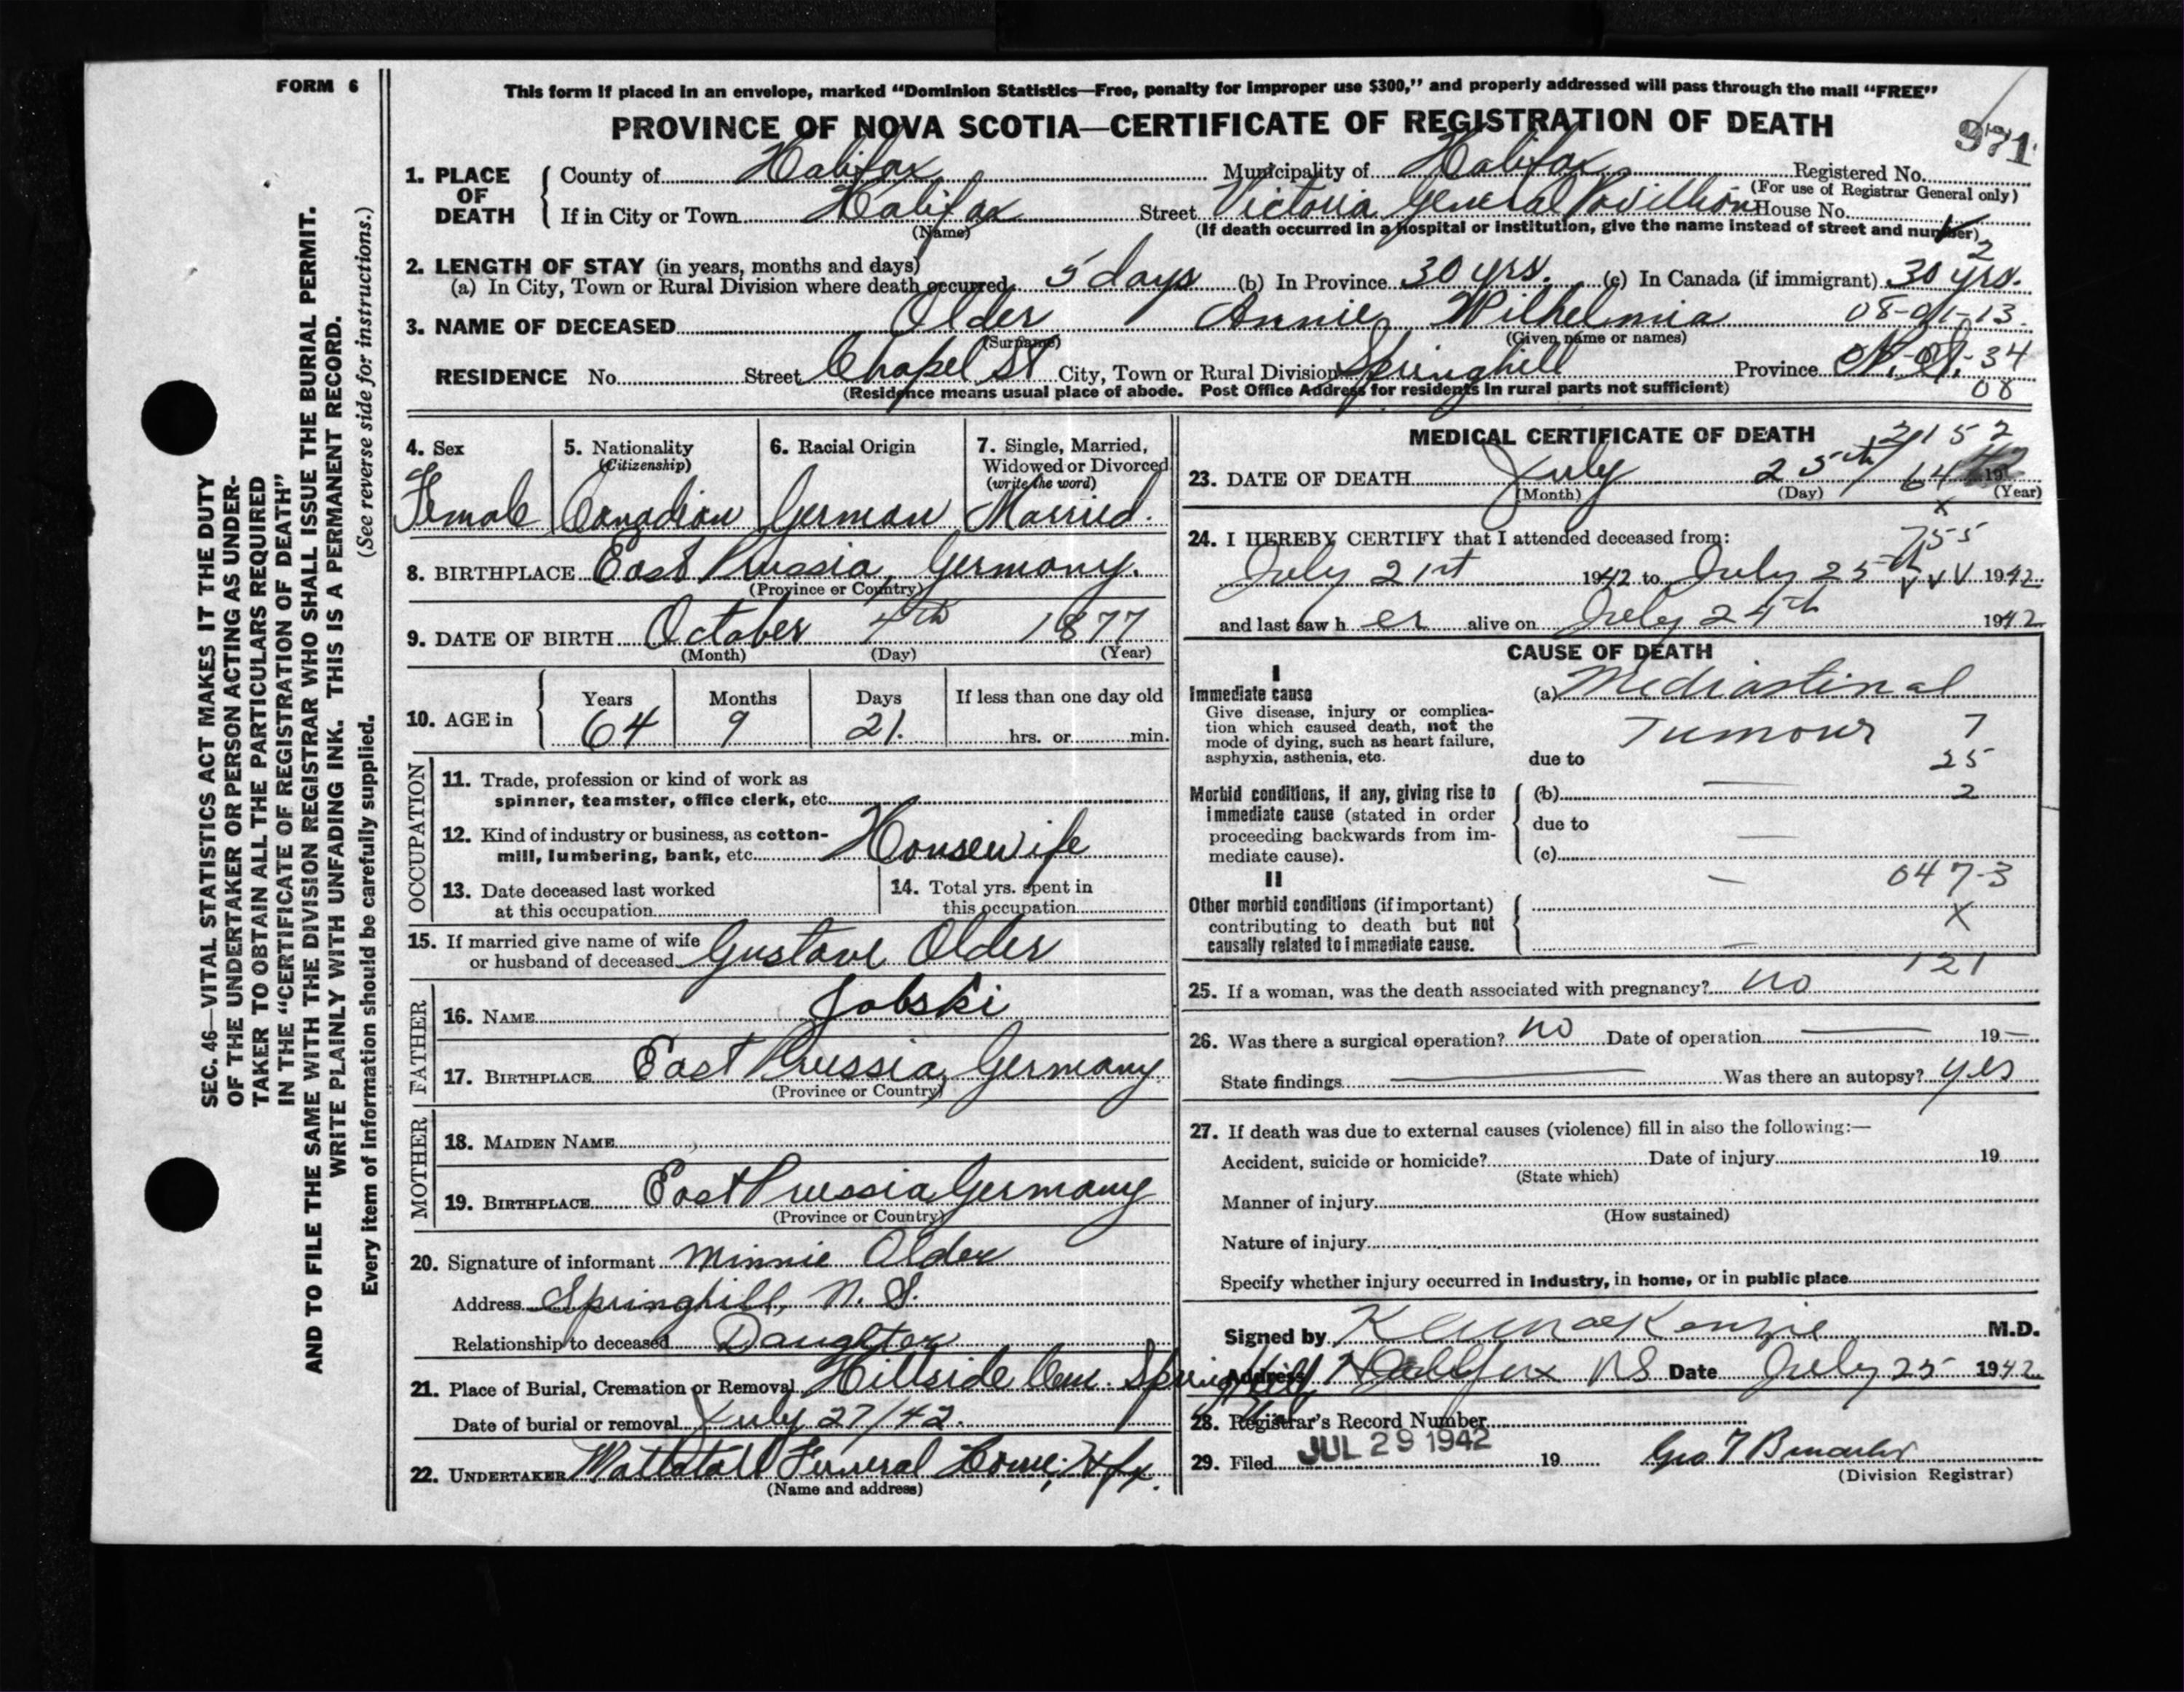 FORM 6
This form if placed in an envelope, marked “Dominion Statistics—Free, penalty for improper use $300,” and properly addressed will pass through the mail “FREE”
PROVINCE OF NOVA SCOTIA—CERTIFICATE OF REGISTRATION OF DEATH
971
1. PLACE OF DEATH
County of Halifax Municipality of Halifax Registered No.
(For use of Registrar General only)
If in City or Town Halifax Street Victoria General Pavillion House No.
(Name) (If death occurred in a hospital or institution, give the name instead of street and number)
2
2. LENGTH OF STAY (in years, months and days)
(a) In City, Town or Rural Division where death occurred 5 days (b) In Province 30 yrs. (c) In Canada (if immigrant) 30 yrs.
3. NAME OF DECEASED Older Annie Wilhelmia 08-01-13
(Surname) (Given name or names)
RESIDENCE No. Street Chapel St City, Town or Rural Division Springhill Province N.S.
34
(Residence means usual place of abode. Post Office Address for residents in rural parts not sufficient) 08
4. Sex Female
5. Nationality (Citizenship) Canadian
6. Racial Origin German
7. Single, Married, Widowed or Divorced (write the word) Married.
8. BIRTHPLACE East Prussia, Germany.
(Province or Country)
9. DATE OF BIRTH October 4th 1877
(Month) (Day) (Year)
10. AGE in Years 64 Months 9 Days 21. If less than one day old
hrs. or min.
OCCUPATION
11. Trade, profession or kind of work as
spinner, teamster, office clerk, etc.
12. Kind of industry or business, as cotton-
mill, lumbering, bank, etc. Housewife
13. Date deceased last worked
at this occupation
14. Total yrs. spent in
this occupation
15. If married give name of wife
or husband of deceased Gustave Older
FATHER
16. NAME Jobski
17. BIRTHPLACE East Prussia, Germany
(Province or Country)
MOTHER
18. MAIDEN NAME
19. BIRTHPLACE East Prussia Germany
(Province or Country)
20. Signature of informant Minnie Older
Address Springhill, N. S.
Relationship to deceased Daughter
21. Place of Burial, Cremation or Removal Hillside Cem. Springhill
Date of burial or removal July 27/42.
22. UNDERTAKER Mattatall Funeral Home, Hfx.
(Name and address)
MEDICAL CERTIFICATE OF DEATH
2152
23. DATE OF DEATH July 25th 64 19
(Month) (Day) (Year)
x
24. I HEREBY CERTIFY that I attended deceased from:
755
July 21st 1942 to July 25th 1942
and last saw her alive on July 24th 1942
CAUSE OF DEATH
I
Immediate cause
Give disease, injury or complica-
tion which caused death, not the
mode of dying, such as heart failure,
asphyxia, asthenia, etc.
(a) Mediastinal
Tumour 7
due to 25
Morbid conditions, if any, giving rise to
immediate cause (stated in order
proceeding backwards from im-
mediate cause).
(b) — 2
due to —
(c)
II
— 047-3
Other morbid conditions (if important)
contributing to death but not
causally related to immediate cause.
X
—
121
25. If a woman, was the death associated with pregnancy? no
26. Was there a surgical operation? no Date of operation — 19—
State findings — Was there an autopsy? yes
27. If death was due to external causes (violence) fill in also the following:—
Accident, suicide or homicide? Date of injury 19
(State which)
Manner of injury
(How sustained)
Nature of injury
Specify whether injury occurred in industry, in home, or in public place
Signed by MacKenzie M.D.
Address Halifax NS Date July 25 1942
28. Registrar's Record Number
29. Filed JUL 29 1942 19 Geo
(Division Registrar)
SEC. 46—VITAL STATISTICS ACT MAKES IT THE DUTY
OF THE UNDERTAKER OR PERSON ACTING AS UNDER-
TAKER TO OBTAIN ALL THE PARTICULARS REQUIRED
IN THE “CERTIFICATE OF REGISTRATION OF DEATH”
AND TO FILE THE SAME WITH THE DIVISION REGISTRAR WHO SHALL ISSUE THE BURIAL PERMIT.
WRITE PLAINLY WITH UNFADING INK. THIS IS A PERMANENT RECORD.
Every item of information should be carefully supplied. (See reverse side for instructions.)